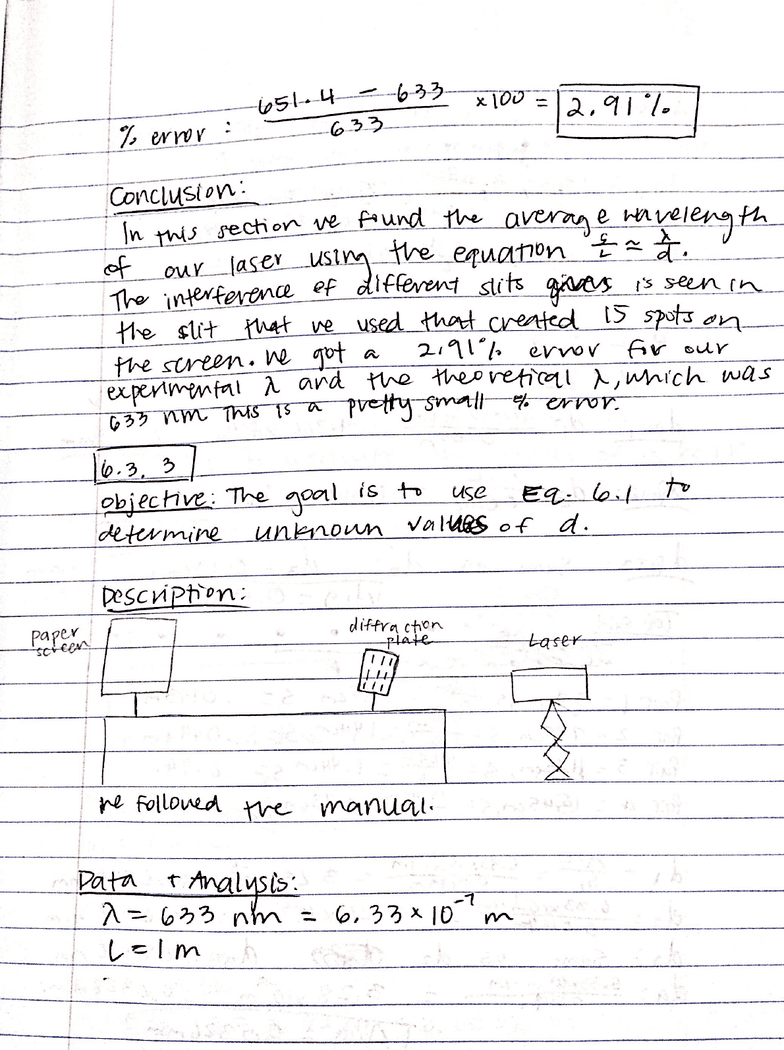 % error : (651.4 - 633)/633 ×100 = 2.91%
Conclusion:
In this section we found the average wavelength
of our laser using the equation s/L ≈ λ/d.
The interference of different slits is seen in
the slit that we used that created 15 spots on
the screen. We got a 2.91% error for our
experimental λ and the theoretical λ, which was
633 nm This is a pretty small % error.
6.3.3
Objective: The goal is to use Eq. 6.1 to
determine unknown values of d.
Description:
paper
screen
diffraction
plate
Laser
We followed the manual.
Data + Analysis:
λ = 633 nm = 6.33 × 10⁻⁷ m
L = 1 m